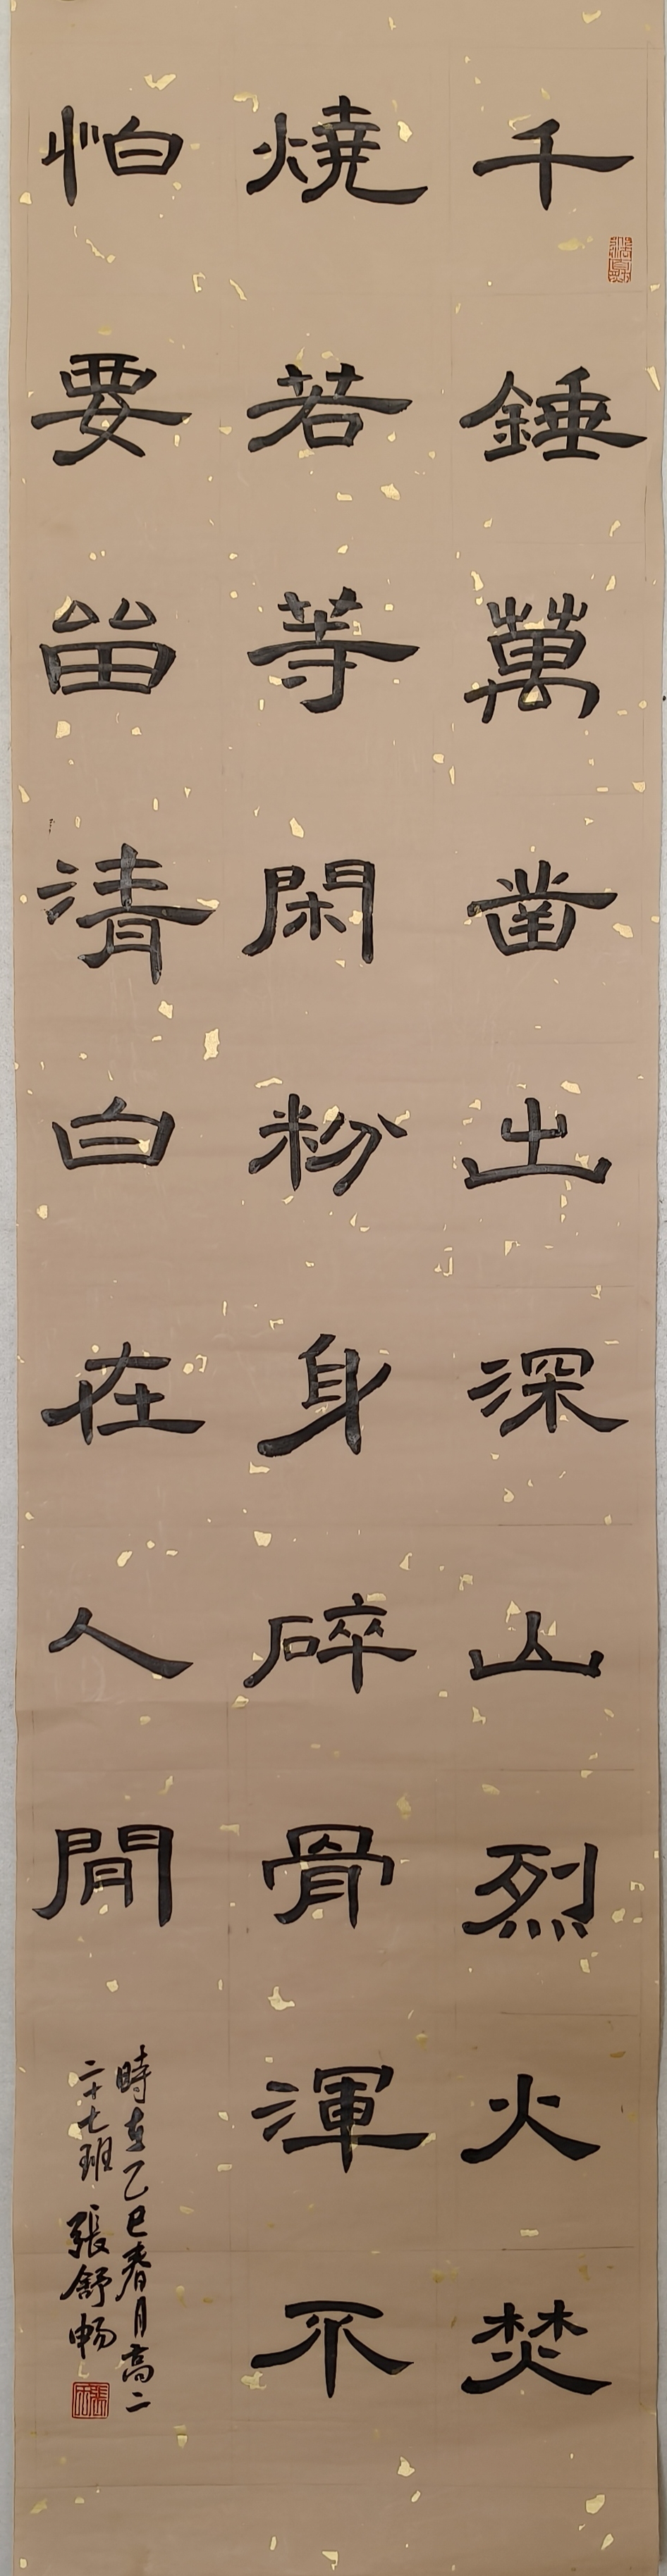 千錘萬凿出深山烈火焚
燒若等閑粉身碎骨渾不
怕要留清白在人間
時在乙巳春月高二
二十七班 張舒畅